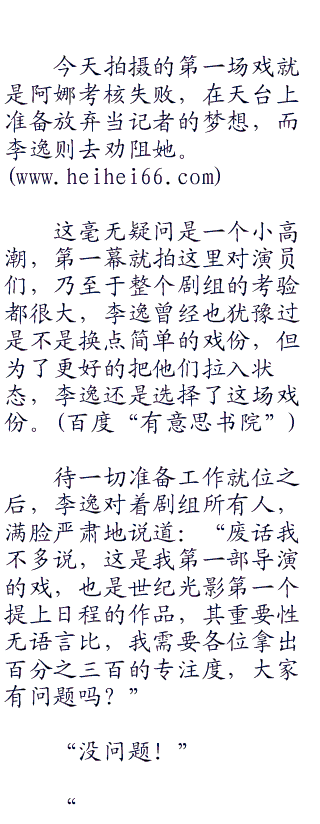 今天拍摄的第一场戏就
是阿娜考核失败，在天台上
准备放弃当记者的梦想，而
李逸则去劝阻她。
(www.heihei66.com)
这毫无疑问是一个小高
潮，第一幕就拍这里对演员
们，乃至于整个剧组的考验
都很大，李逸曾经也犹豫过
是不是换点简单的戏份，但
为了更好的把他们拉入状
态，李逸还是选择了这场戏
份。(百度“有意思书院”)
待一切准备工作就位之
后，李逸对着剧组所有人，
满脸严肃地说道：“废话我
不多说，这是我第一部导演
的戏，也是世纪光影第一个
提上日程的作品，其重要性
无语言比，我需要各位拿出
百分之三百的专注度，大家
有问题吗？”
“没问题！”
“